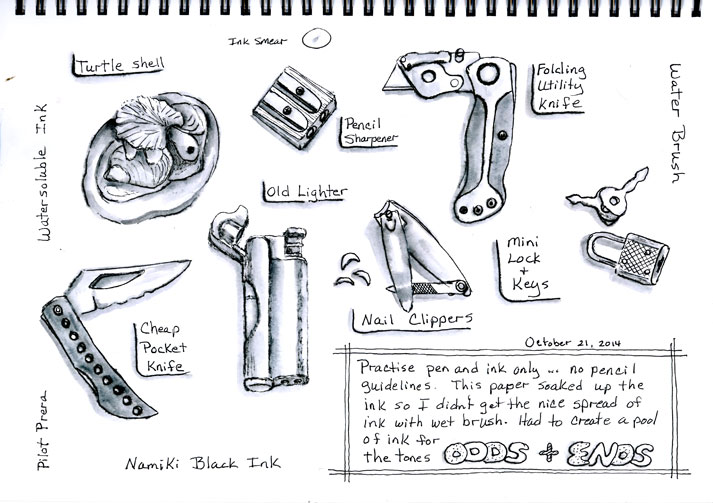 Ink Smear
Turtle shell
Pencil
Sharpener
Folding
Utility
Knife
Water Brush
Water-soluble Ink
Old Lighter
Mini
Lock
+
Keys
Nail Clippers
Cheap
Pocket
Knife
Pilot Prera
Namiki Black Ink
October 21, 2014
Practise pen and ink only ... no pencil
guidelines. This paper soaked up the
ink so I didn't get the nice spread of
ink with wet brush. Had to create a pool
of ink for
the tones ODDS + ENDS